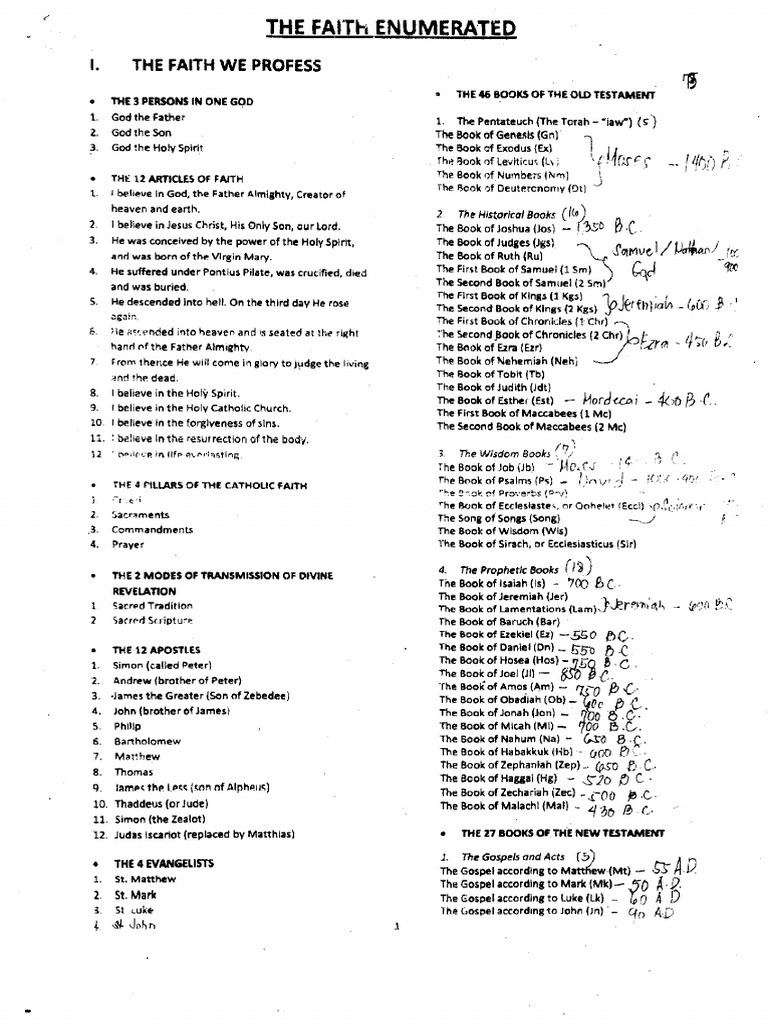 THE FAITH ENUMERATED
I. THE FAITH WE PROFESS
• THE 3 PERSONS IN ONE GOD
1. God the Father
2. God the Son
3. God the Holy Spirit
• THE 12 ARTICLES OF FAITH
1. I believe in God, the Father Almighty, Creator of
heaven and earth.
2. I believe in Jesus Christ, His Only Son, our Lord.
3. He was conceived by the power of the Holy Spirit,
and was born of the Virgin Mary.
4. He suffered under Pontius Pilate, was crucified, died
and was buried.
5. He descended into hell. On the third day He rose
again.
6. He ascended into heaven and is seated at the right
hand of the Father Almighty.
7. From thence He will come in glory to judge the living
and the dead.
8. I believe in the Holy Spirit.
9. I believe in the Holy Catholic Church.
10. I believe in the forgiveness of sins.
11. I believe in the resurrection of the body.
12 I believe in life everlasting.
• THE 4 PILLARS OF THE CATHOLIC FAITH
1 Creed
2. Sacraments
3. Commandments
4. Prayer
• THE 2 MODES OF TRANSMISSION OF DIVINE
REVELATION
1. Sacred Tradition
2 Sacred Scripture
• THE 12 APOSTLES
1. Simon (called Peter)
2. Andrew (brother of Peter)
3. James the Greater (Son of Zebedee)
4. John (brother of James)
5. Philip
6. Bartholomew
7. Matthew
8. Thomas
9. James the Less (son of Alpheus)
10. Thaddeus (or Jude)
11. Simon (the Zealot)
12. Judas Iscariot (replaced by Matthias)
• THE 4 EVANGELISTS
1. St. Matthew
2. St. Mark
3. St Luke
4. St John
• THE 46 BOOKS OF THE OLD TESTAMENT
1. The Pentateuch (The Torah – "law") (5)
The Book of Genesis (Gn)
The Book of Exodus (Ex)
The Book of Leviticus (Lv) Moses - 1400 B.C
The Book of Numbers (Nm)
The Book of Deuteronomy (Dt)
2. The Historical Books (16)
The Book of Joshua (Jos) - 1350 B.C.
The Book of Judges (Jgs)
The Book of Ruth (Ru) Samuel / Nathan /
The First Book of Samuel (1 Sm) Gad 900
The Second Book of Samuel (2 Sm)
The First Book of Kings (1 Kgs)
The Second Book of Kings (2 Kgs) Jeremiah - 600 B
The First Book of Chronicles (1 Chr)
The Second Book of Chronicles (2 Chr) Ezra - 450 BC
The Book of Ezra (Ezr)
The Book of Nehemiah (Neh)
The Book of Tobit (Tb)
The Book of Judith (Jdt)
The Book of Esther (Est) - Mordecai - 400 B.C.
The First Book of Maccabees (1 Mc)
The Second Book of Maccabees (2 Mc)
3. The Wisdom Books (7)
The Book of Job (Jb) - Moses B.C.
The Book of Psalms (Ps) - David
The Book of Proverbs (Prv)
The Book of Ecclesiastes, or Qohelet (Eccl)
The Song of Songs (Song)
The Book of Wisdom (Wis)
The Book of Sirach, or Ecclesiasticus (Sir)
4. The Prophetic Books (18)
The Book of Isaiah (Is) - 700 B.C.
The Book of Jeremiah (Jer)
The Book of Lamentations (Lam) Jeremiah - 600 BC
The Book of Baruch (Bar)
The Book of Ezekiel (Ez) - 550 B.C.
The Book of Daniel (Dn) - 550 B.C.
The Book of Hosea (Hos) - 750 B.C.
The Book of Joel (Jl) - 850 B.C.
The Book of Amos (Am) - 750 B.C.
The Book of Obadiah (Ob) - 600 B.C.
The Book of Jonah (Jon) - 700 B.C.
The Book of Micah (Mi) - 700 B.C.
The Book of Nahum (Na) - 650 B.C.
The Book of Habakkuk (Hb) - 600 B.C.
The Book of Zephaniah (Zep) - 650 B.C.
The Book of Haggai (Hg) - 520 B.C.
The Book of Zechariah (Zec) - 500 B.C.
The Book of Malachi (Mal) - 430 B.C.
• THE 27 BOOKS OF THE NEW TESTAMENT
1. The Gospels and Acts (5)
The Gospel according to Matthew (Mt) - 55 A.D.
The Gospel according to Mark (Mk) - 50 A.D.
The Gospel according to Luke (Lk) - 60 A D
The Gospel according to John (Jn) - 90 A.D
1